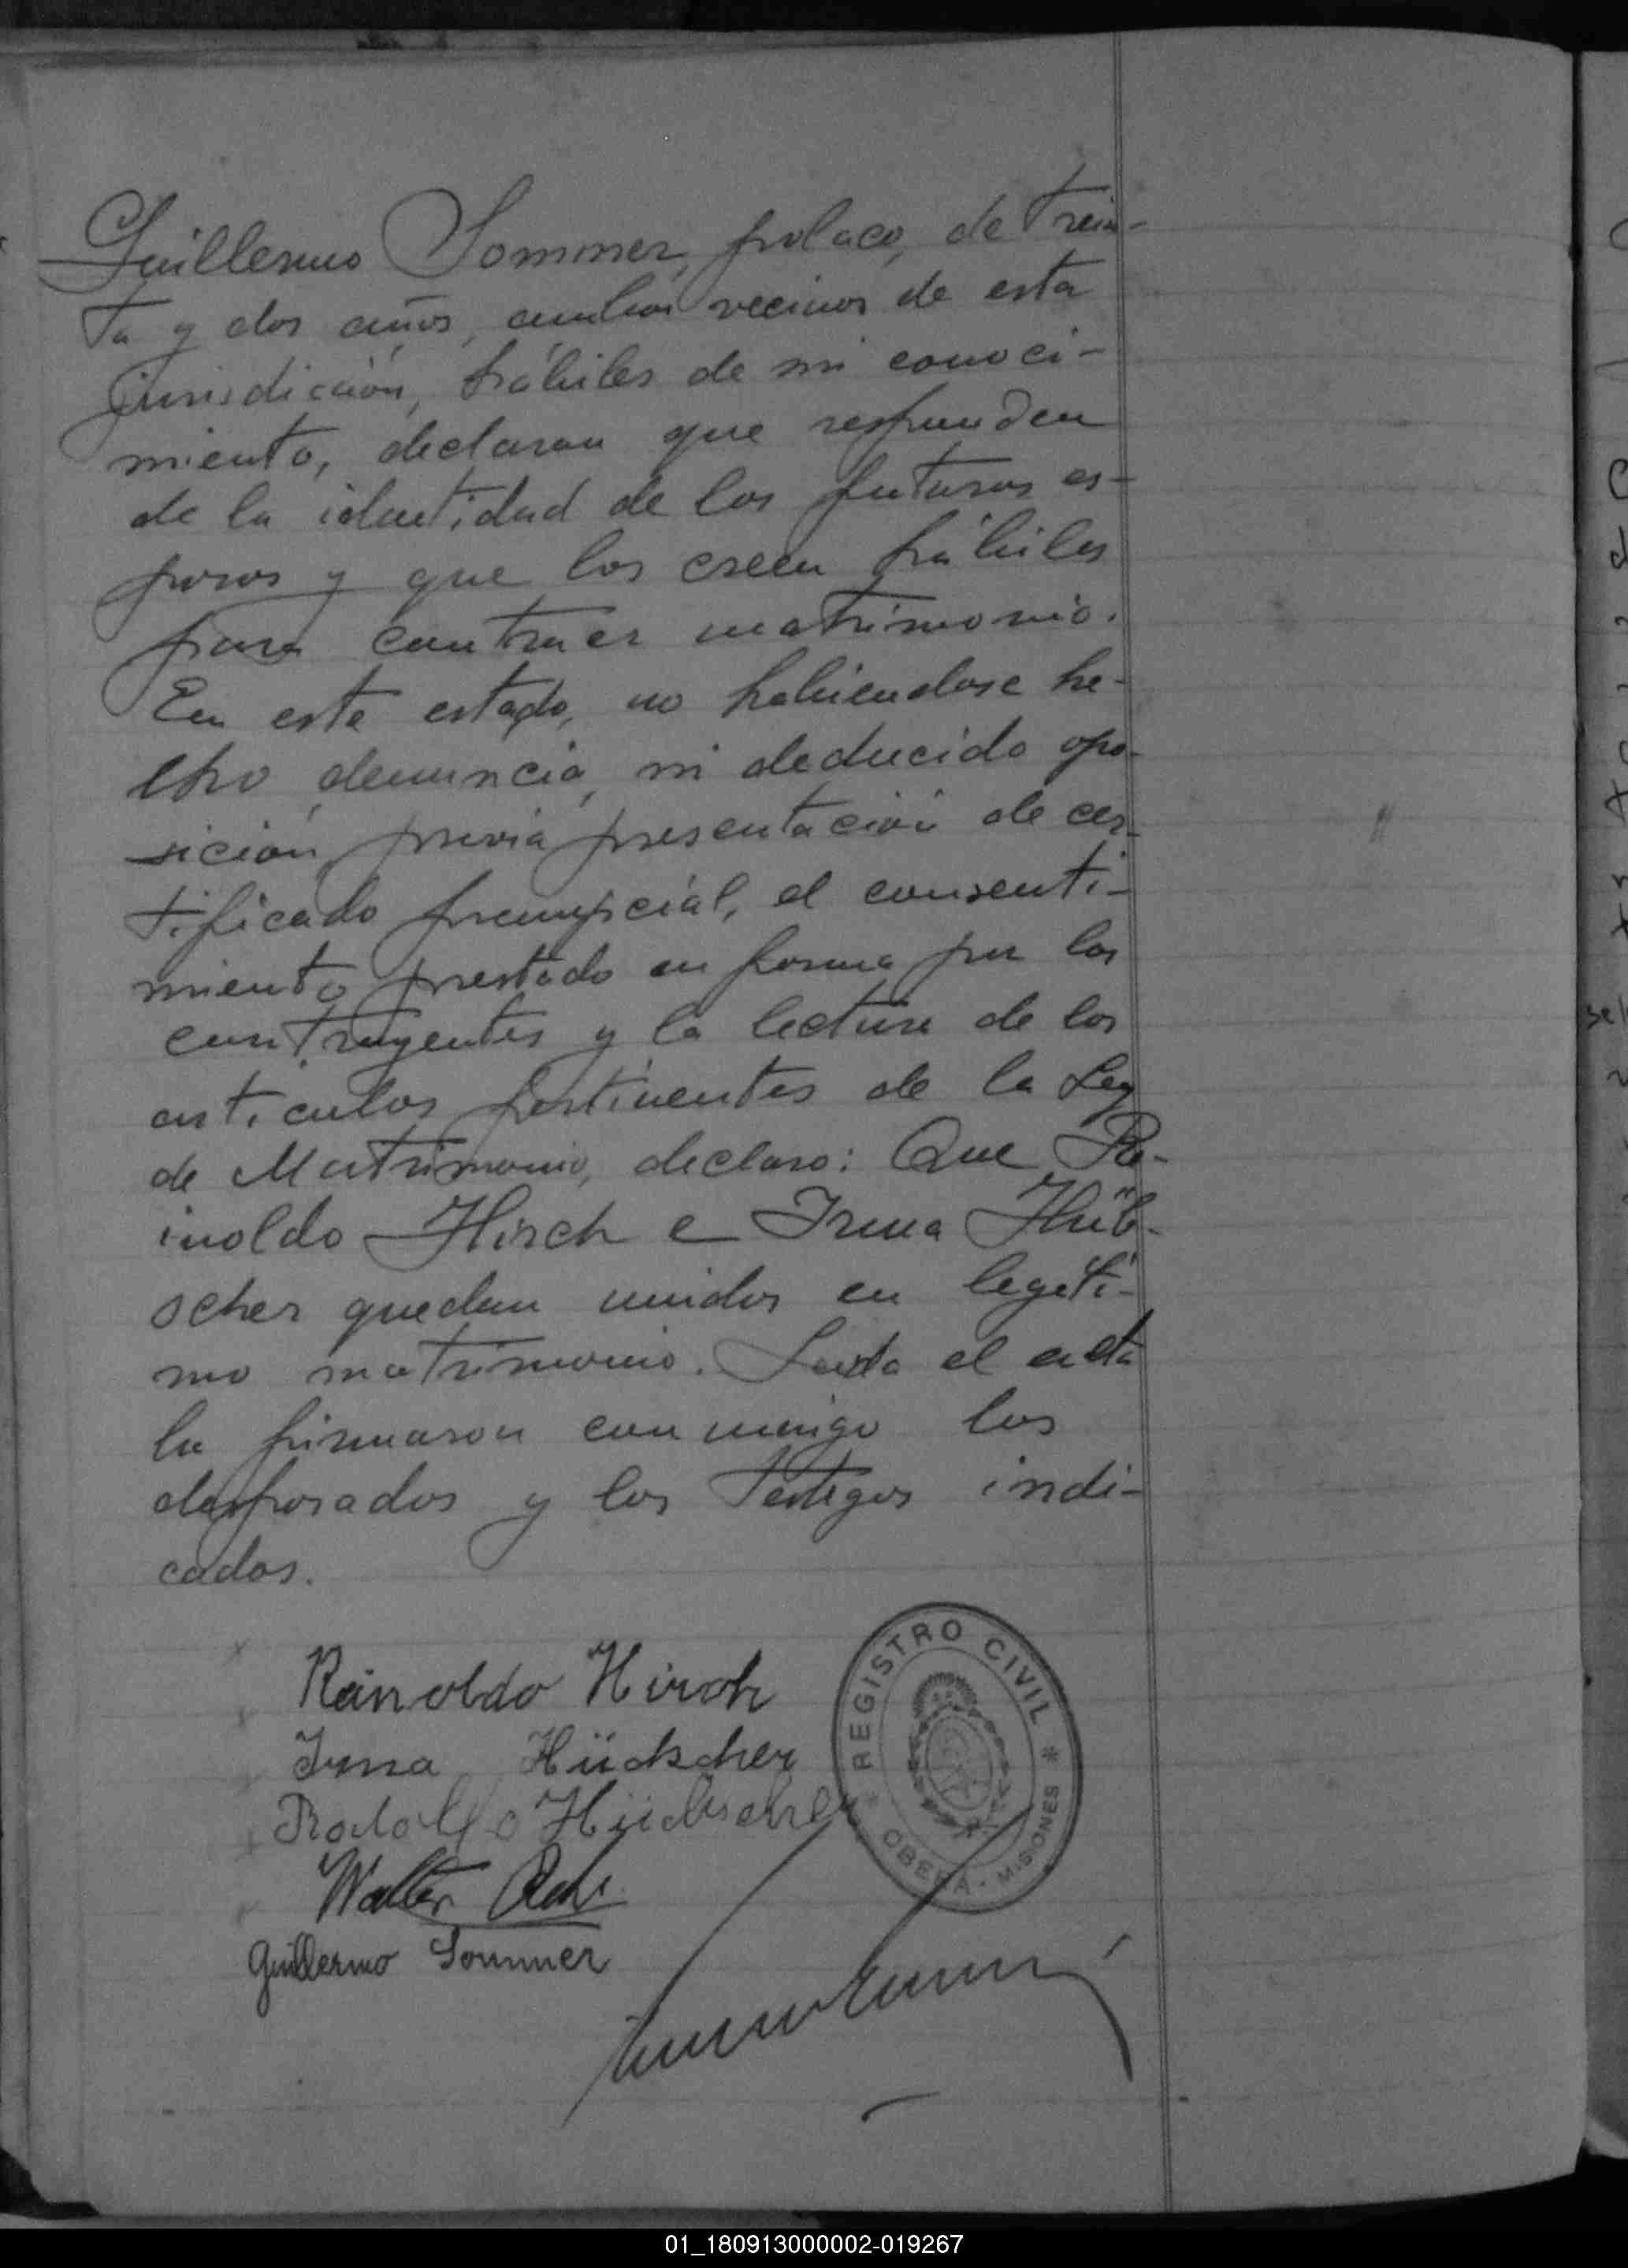 Guillermo Sommer, polaco, de trein-
ta y dos años, ambos vecinos de esta
jurisdicción, hábiles de mi conoci-
miento, declaran que responden
de la identidad de los futuros es-
posos y que los creen hábiles
para contraer matrimonio.
En este estado, no habiendose he-
cho denuncia, ni deducido opo-
sición, previa presentación de cer-
tificado prenupcial, el consenti-
miento prestado en forma por los
contrayentes y la lectura de los
articulos pertinentes de la Ley
de Matrimonio, declaro: Que Re-
inoldo Hirsch e Irma Hüb-
scher quedan unidos en legíti-
mo matrimonio. Leida el acta
la firmaron conmigo los
desposados y los testigos indi-
cados.
Reinoldo Hirsch
Irma Hübscher
Rodolfo Hübscher
Walter
Guillermo Sommer
REGISTRO CIVIL
OBERA - MISIONES
01_180913000002-019267